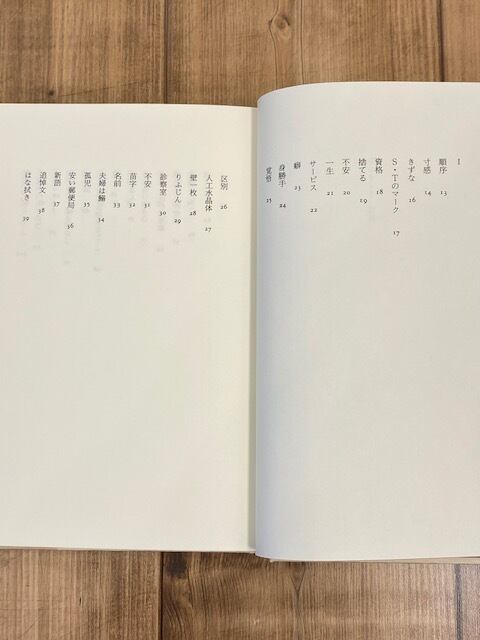 I
順序 13
寸感 14
きずな 16
S・Tのマーク 17
資格 18
捨てる 19
不安 20
一生 21
サービス 22
癖 23
身勝手 24
覚悟 25
区別 26
人工水晶体 27
壁一枚 28
りふじん 29
診察室 30
不安 31
苗字 32
名前 33
夫婦は 34
孤児 35
安い郵便局 36
新語 37
追悼文 38
はな拭き 39